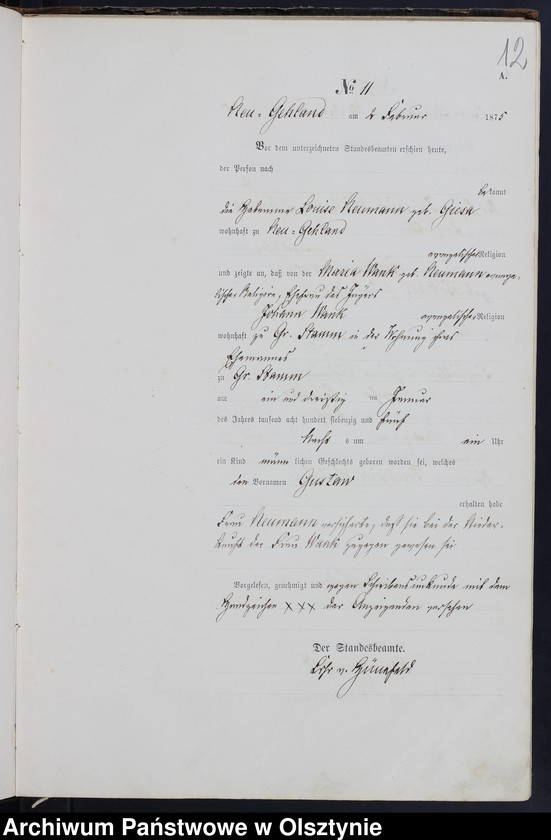 12
A.
No 11
Neu-Gehland am 2 Februar 1875
Vor dem unterzeichneten Standesbeamten erschien heute,
der Person nach
bekannt
die Hebamme Louise Neumann geb. Giesa
wohnhaft zu Neu-Gehland
evangelischer Religion
und zeigte an, daß von der Maria Wank geb. Neumann evange-
lischer Religion, Ehefrau des
Johann Wank evangelischer Religion
wohnhaft zu Gr. Stamm in der Wohnung ihres
Ehemannes
zu Gr. Stamm
am ein und dreißig ten Januar
des Jahres tausend acht hundert siebenzig und fünf
Nachts um ein Uhr
ein Kind männlichen Geschlechts geboren worden sei, welches
den Vornamen Gustav
erhalten habe
Frau Neumann versicherte, daß sie bei der Nieder-
kunft der Frau Wank zugegen gewesen sei
Vorgelesen, genehmigt und wegen Schreibensunkunde mit dem
Handzeichen XXX der Anzeigenden versehen
Der Standesbeamte.
Frhr v.
Archiwum Państwowe w Olsztynie